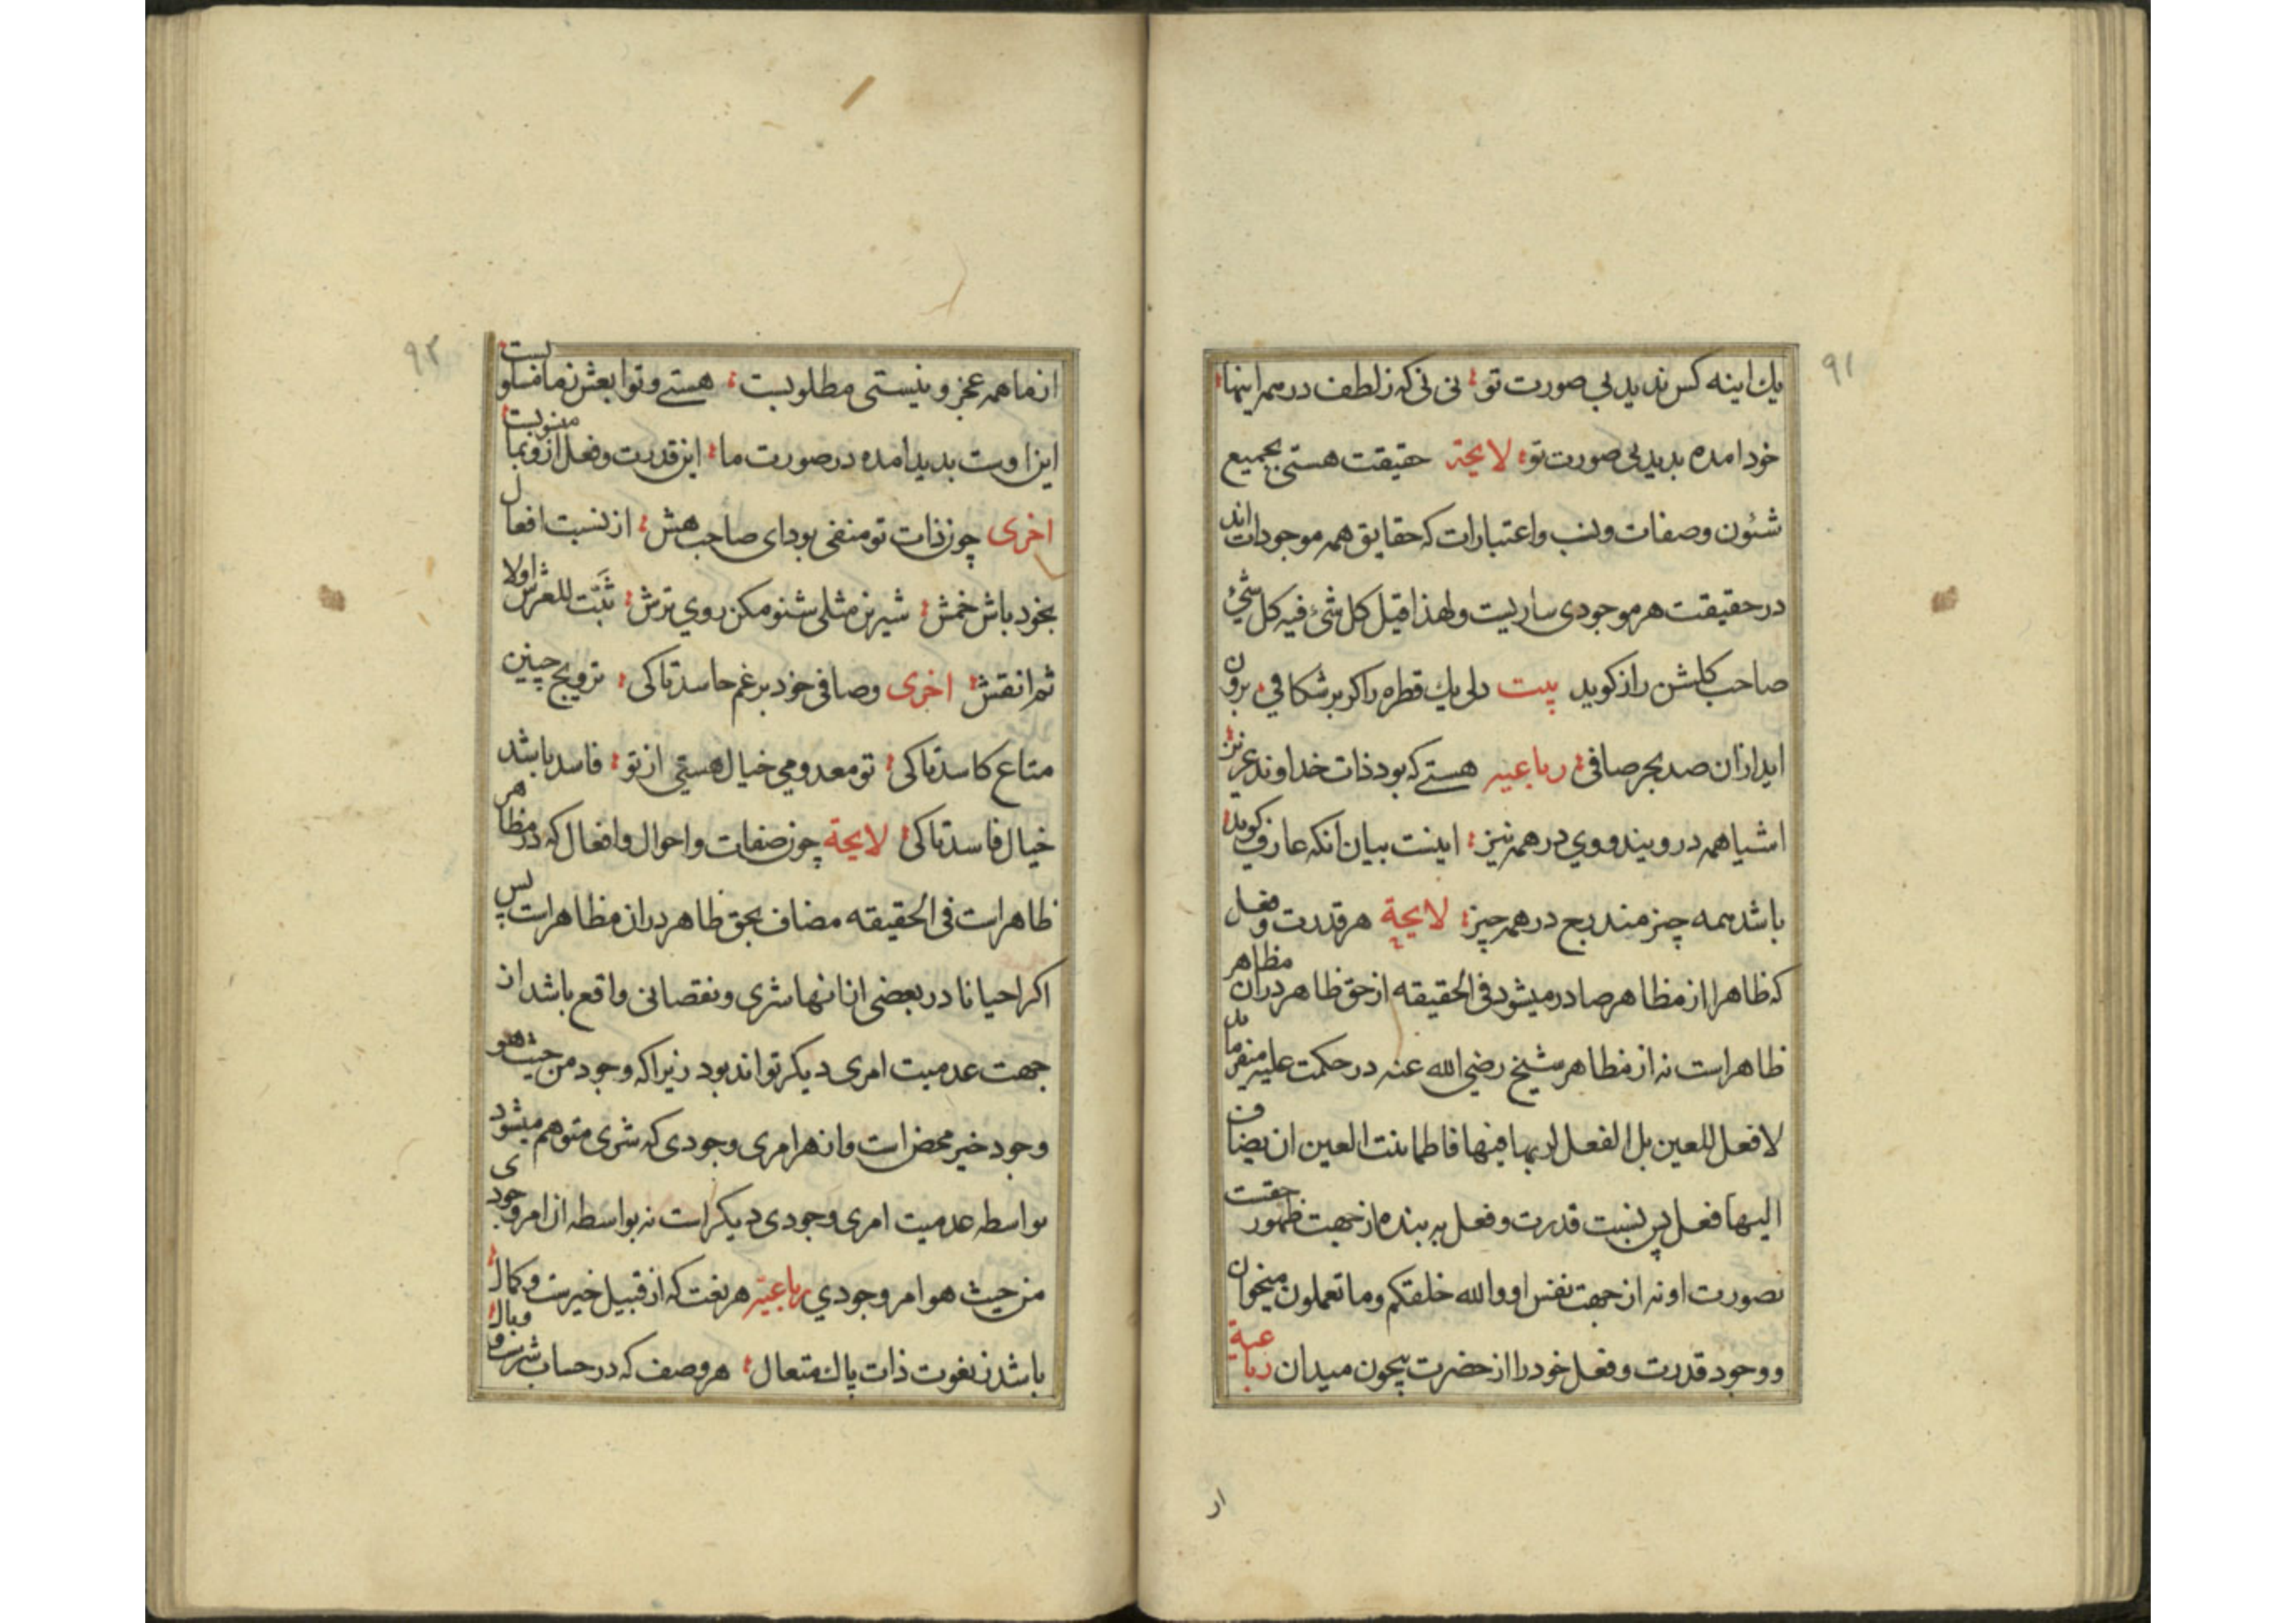 ٩١
یك اینه کس ندید بی صورت تو ؛ نی نی که ز لطف در همه اینها ؛
خود امده بدید بی صورت تو ؛ لایحة حقیقت هستی بجمیع
شئون وصفات ونسب واعتبارات که حقایق همه موجودات اند
در حقیقت هر موجودی ساریست ولهذا قیل کل شئ فیه کل شئ
صاحب کلشن راز کوید بیت دل یك قطره را کر بر شکافی ؛ برون
اید ازان صد بحر صافی ؛ رباعیه هستے که بود ذات خداوند عزیز ؛
اشیا همه در ویند ووی در همه نیز ؛ اینست بیان انکه عارف کوید ؛
باشد همه چیز مندرج در همه چیز ؛ لایحة هر قدرت وفعل
که ظاهرا از مظاهر صادر میشود فی الحقیقه از حق ظاهر در ان مظاهر
ظاهر است نه از مظاهر شیخ رضی الله عنه در حکمت علیه میفرماید
لا فعل للعین بل الفعل لربها فیها فاطمانت العین ان یضاف
الیها فعل پس نسبت قدرت وفعل به بنده از جهت ظهور حقست
بصورت او نه از جهت نفس او والله خلقکم وما تعملون میخوان
ووجود قدرت وفعل خود را از حضرت بیچون میدان رباعیة
ار
٩٢
از ما همه عجز و نیستی مطلوبست ؛ هستے وتوابعش ز ما مسلوبست ؛
این اوست بدید امده در صورت ما ؛ این قدرت وفعل ازو بما منسوبست ؛
اخری چون ذات تو منفی بود ای صاحب هش ؛ از نسبت افعال
بخود باش خمش ؛ شیرین مثلی شنو مکن روی ترش ؛ ثبت العرش اولا
ثم انقش ؛ اخری وصافی خود برغم حاسد تا کی ؛ ترویج چنین
متاع کاسد تا کی ؛ تو معدومی خیال هستی از تو ؛ فاسد باشد
خیال فاسد تا کی ؛ لایحة چون صفات واحوال وافعال که در مظاهر
ظاهر است فی الحقیقه مضاف بحق ظاهر در ان مظاهر است پس
اکر احیانا در بعضی از انها شری ونقصانی واقع باشد از
جهت عدمیت امری دیکر تواند بود زیرا که وجود من حیث هو
وجود خیر محض است واز هر امری وجودی که شری متوهم میشود
بواسطه عدمیت امری وجودی دیکر است نه بواسطه ان امر وجودی
من حیث هو امر وجودی رباعیة هر نعت که از قبیل خیرست وکمال ؛
باشد ز نعوت ذات پاك متعال ؛ هر وصف که در حساب شرست و وبال ؛